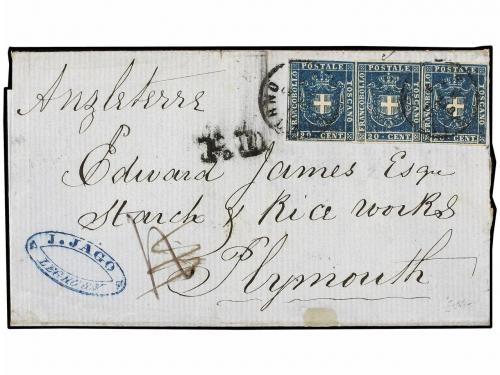 Angleterre
FRANCOBOLLO POSTALE TOSCANO 20 CENT
FRANCOBOLLO POSTALE TOSCANO 20 CENT
POSTALE TOSCANO CENT
RNO
P.D.
Edward James Esqr
Starch & Rice Works
Plymouth
J. JAGO
LEGHORN